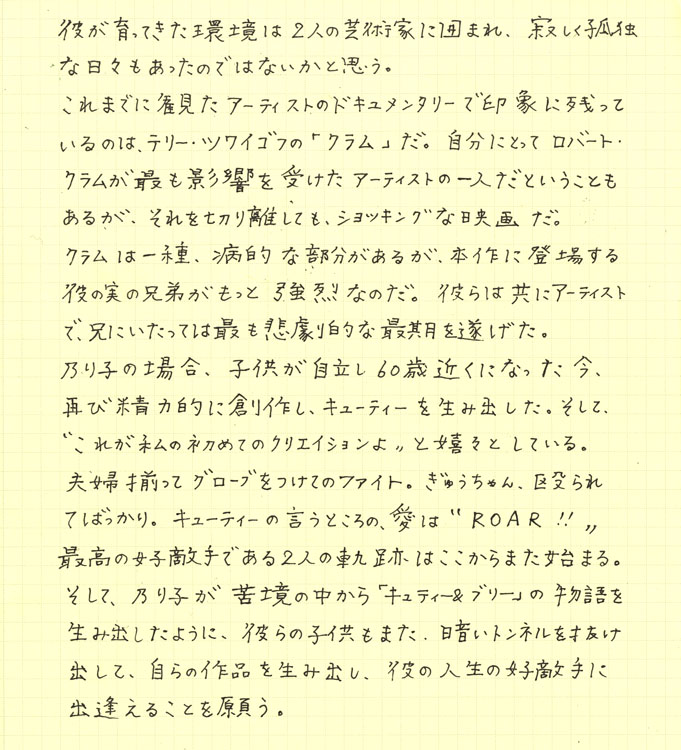 彼が育ってきた環境は2人の芸術家に囲まれ、寂しく孤独
な日々もあったのではないかと思う。
これまでに観たアーティストのドキュメンタリーで印象に残って
いるのは、テリー・ツワイゴフの「クラム」だ。自分にとってロバート・
クラムが最も影響を受けたアーティストの一人だということも
あるが、それを切り離しても、ショッキングな映画だ。
クラムは一種、病的な部分があるが、本作に登場する
彼の実の兄弟がもっと強烈なのだ。彼らは共にアーティスト
で、兄にいたっては最も悲劇的な最期を遂げた。
乃り子の場合、子供が自立し60歳近くになった今、
再び精力的に創作し、キューティーを生み出した。そして、
〝これが私の初めてのクリエイションよ〟と嬉々としている。
夫婦揃ってグローブをつけてのファイト。ぎゅうちゃん、殴られ
てばっかり。キューティーの言うところの、愛は〝ROAR!!〟
最高の好敵手である2人の軌跡はここからまた始まる。
そして、乃り子が苦境の中から「キュティー&ブリー」の物語を
生み出したように、彼らの子供もまた、暗いトンネルを抜け
出して、自らの作品を生み出し、彼の人生の好敵手に
出逢えることを願う。